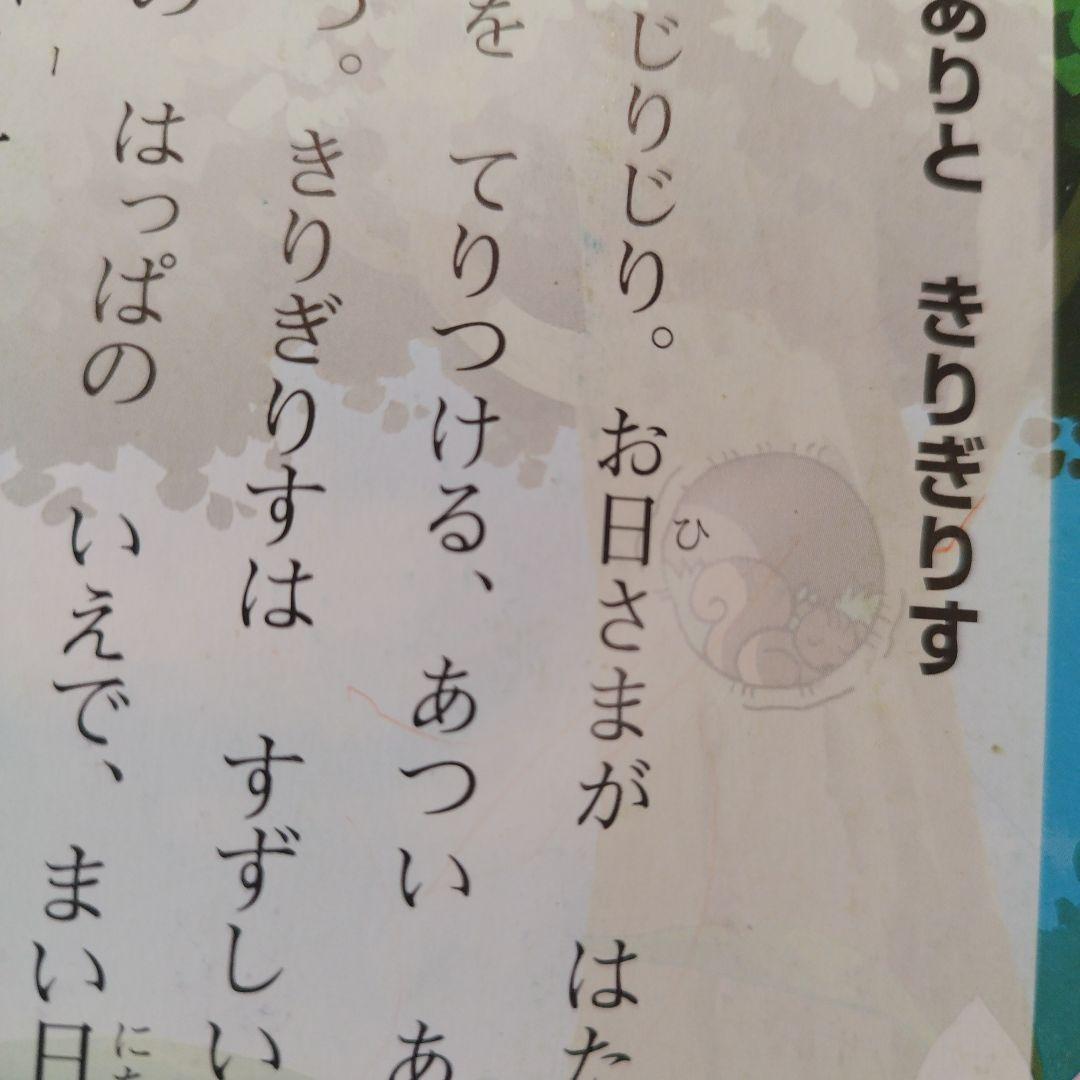 りと きりぎりす
じりじり。 お日さまが はた
を てりつける、 あつい あ
う。 きりぎりすは すずしい
はっぱの いえで、 まい日
ひ
に